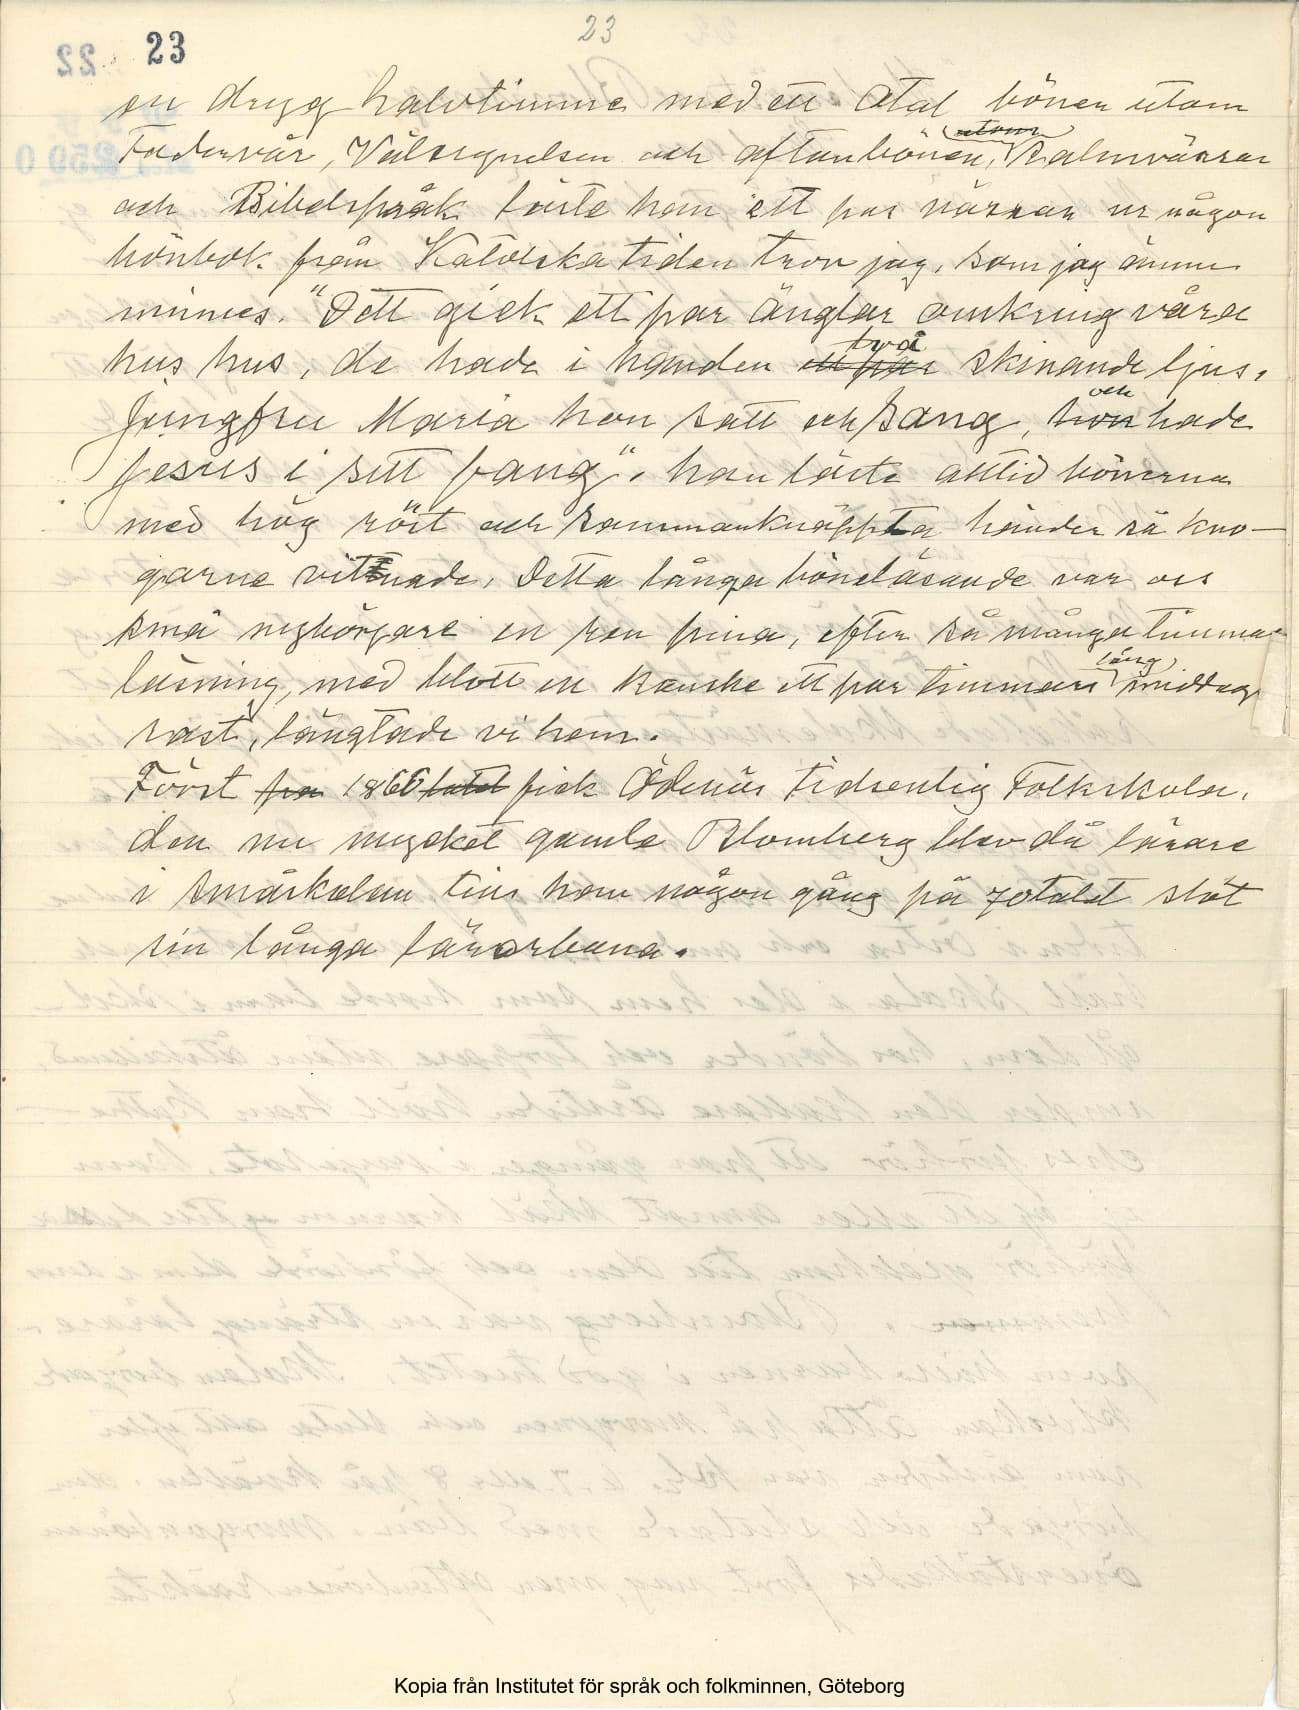 23
23
en dryg halvtimme med ett otal böner utom
Fadervår, Välsignelsen och aftonbönen, Psalmvärsar
och Bibelspråk läste han ett par värsar ur någon
bönbok från Katolska tiden tror jag, som jag ännu
minnes. "Dett gick ett par änglar omkring våra
hus hus, de hade i handen ett par två skinande ljus.
Jungfru Maria hon satt och sang, hon och hade
Jesus i sitt fang". han läste alltid bönerna
med hög röst och sammanknäppta händer så kno-
garne vittnade. Detta långa böneläsande var oss
små nybörjare en ren pina, efter så många timmar
läsning, med blott en kanske ett par timmars lång middags
rast, längtade vi hem.
Först fra 1866 fick Ödenäs tidsenlig Folkskola,
den nu mycket gamle Blomberg blev då lärare
i småskolan tills han någon gång på 70talet slöt
sin långa lärarbana.
Kopia från Institutet för språk och folkminnen, Göteborg